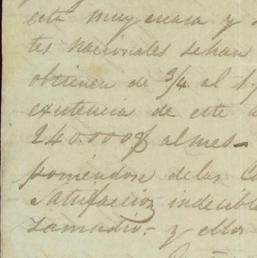 está muy escasa y
tes nacionales se han
obtienen de 3/4 al 1
existencia de este a
240.000$ al mes
poniéndose de las C
Satisfaccion indecible
Zamudio.- y ellos